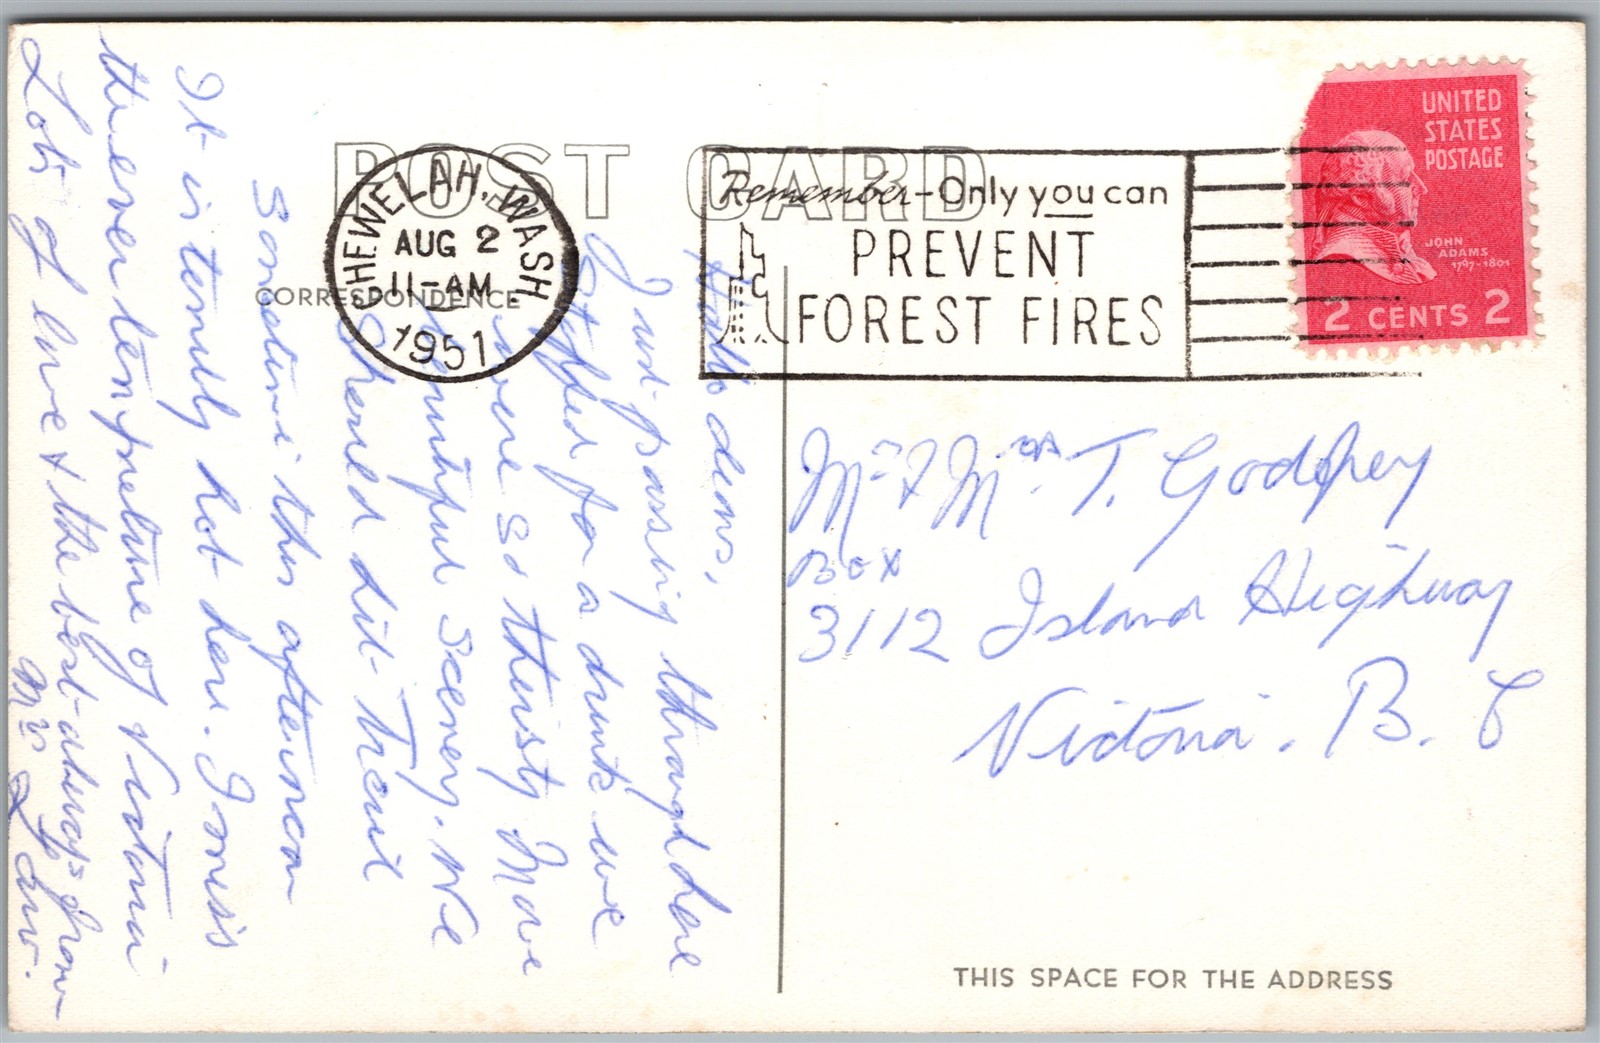 POST CARD
CORRESPONDENCE
CHEWELAH, WASH.
AUG 2
11-AM
1951
Remember-Only you can
PREVENT
FOREST FIRES
UNITED
STATES
POSTAGE
JOHN
ADAMS
1797-1801
2 CENTS 2
Hello dears,
Just passing through here
stopped for a drink we
were so thirsty More
beautiful scenery. We
should hit Trail
sometime this afternoon
It is terribly hot here. I miss
the even tempreture of Victoria
Lots of love & the best always from
Mrs Law.
Mr & Mrs T. Godfrey
Box
3112 Island Highway
Victoria. B. C
THIS SPACE FOR THE ADDRESS